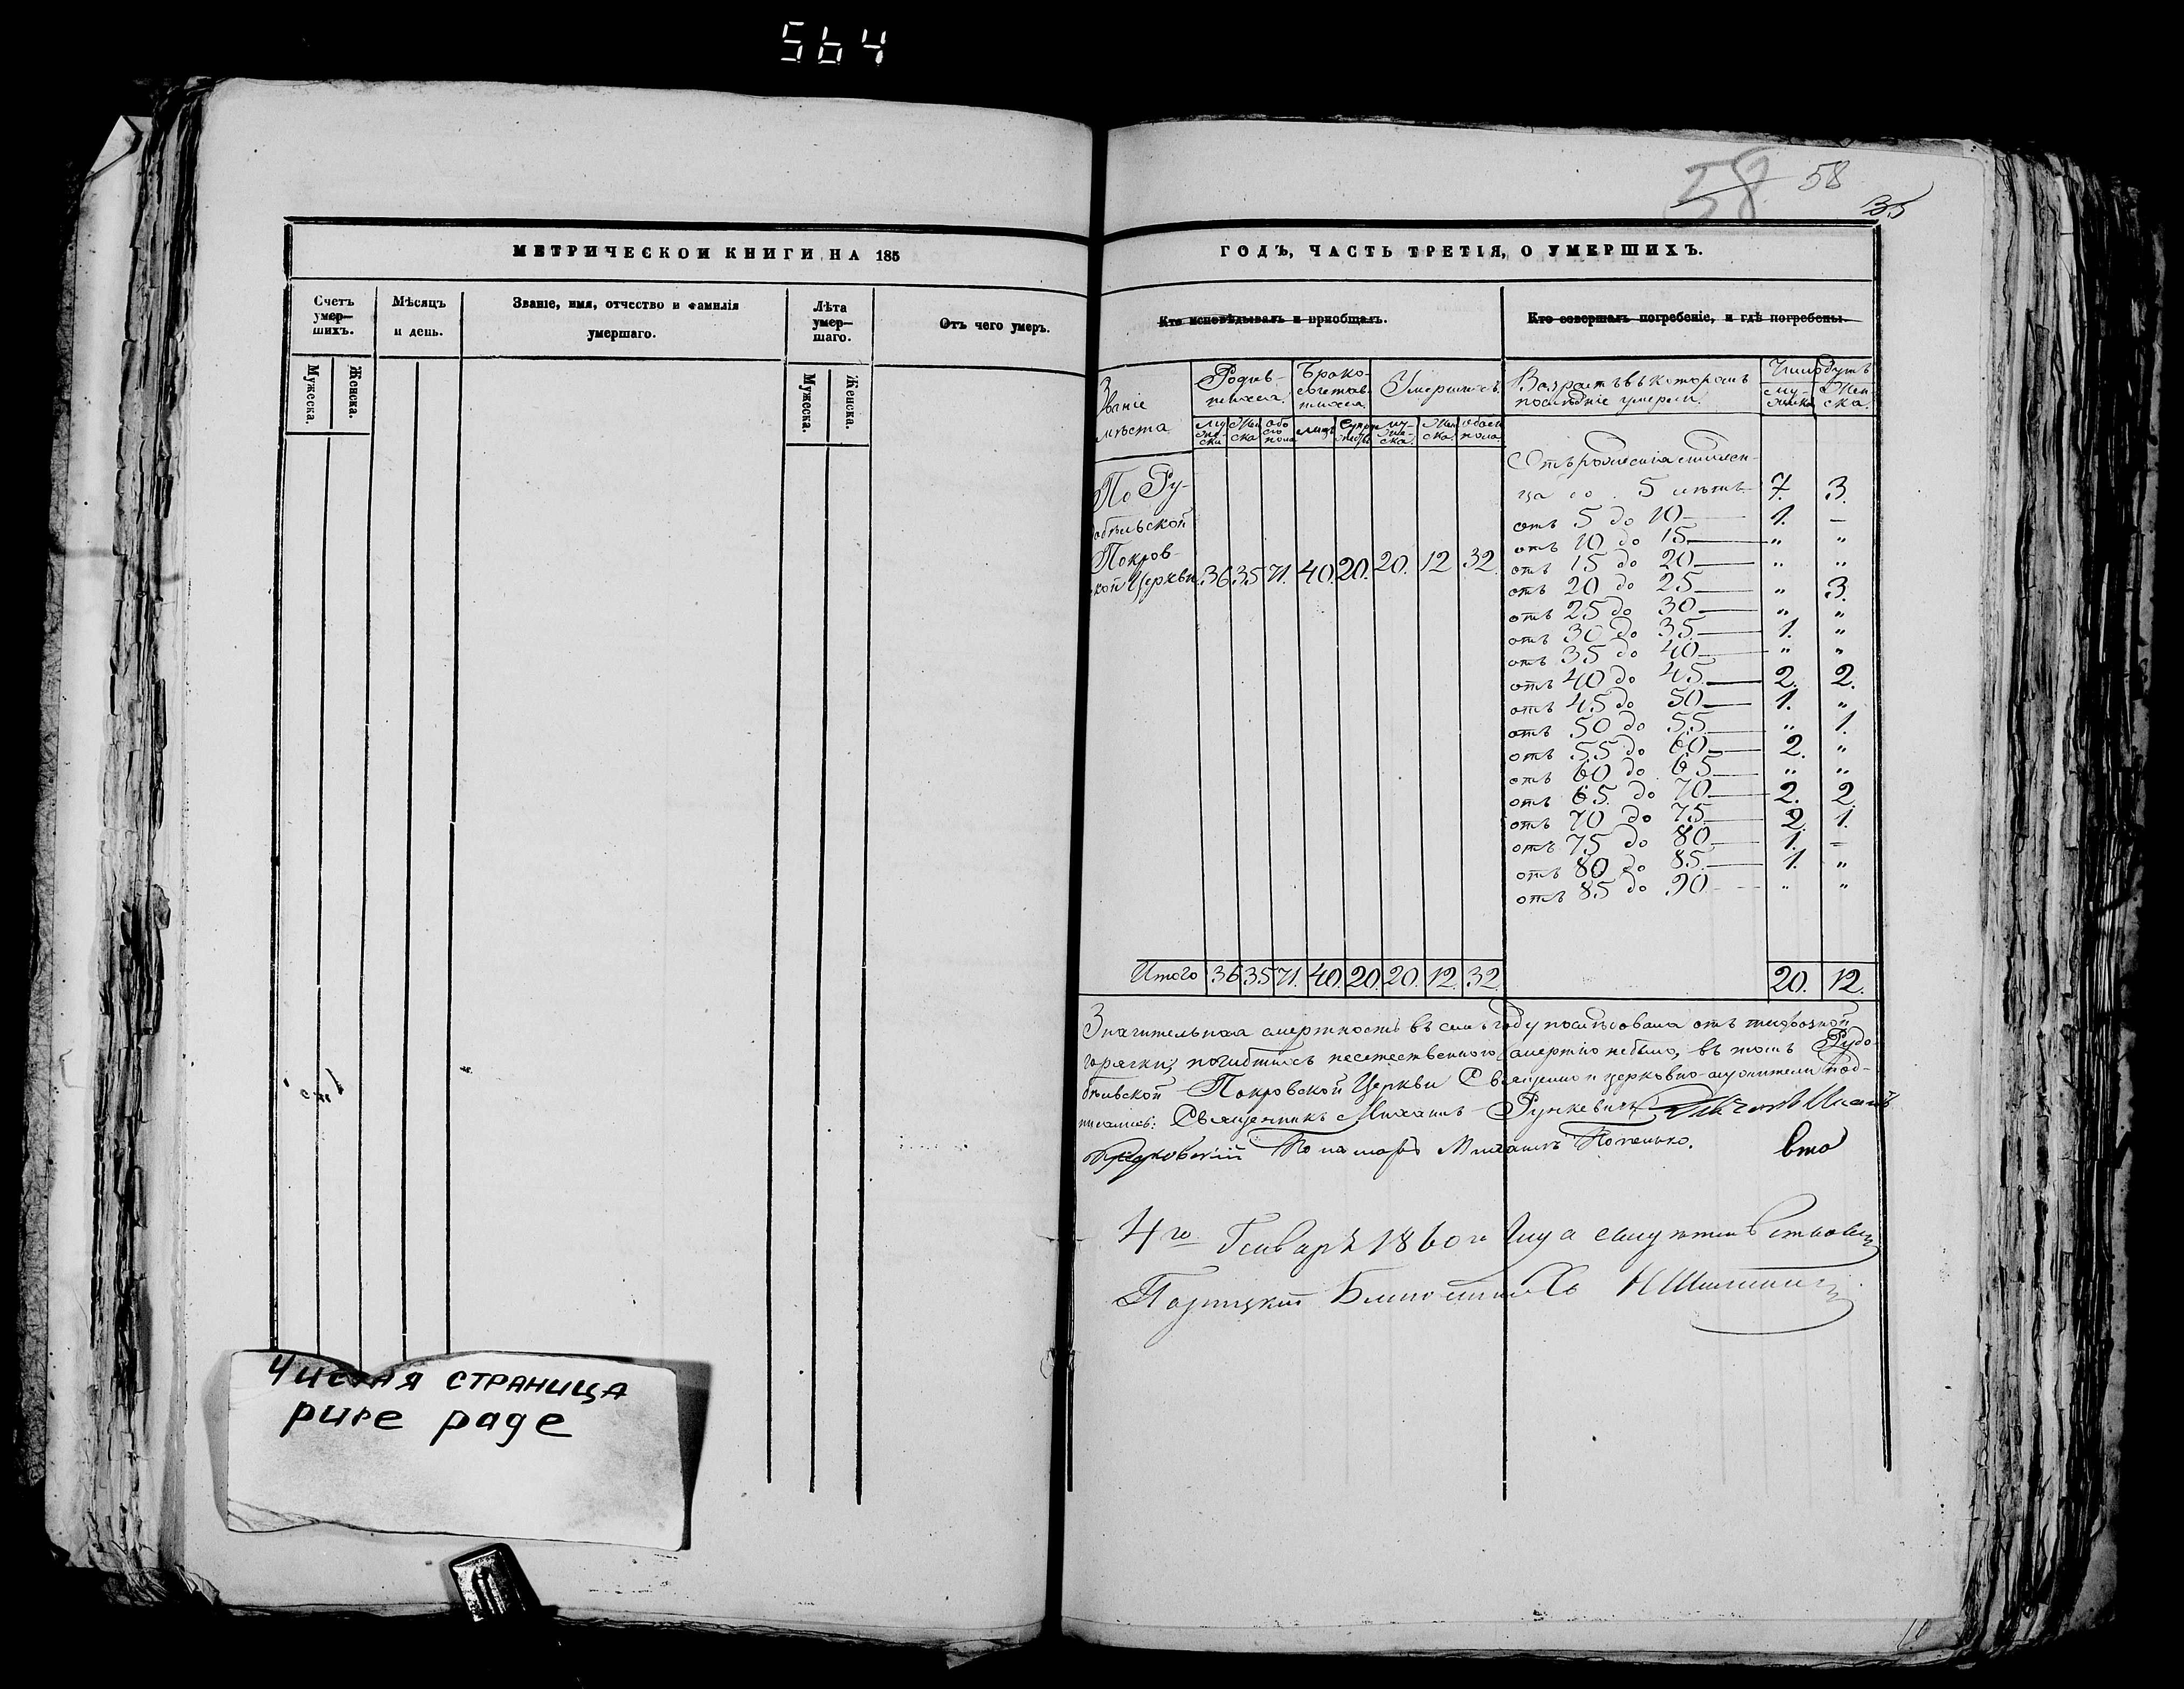 564
58 58
35
МЕТРИЧЕСКОЙ КНИГИ НА 185
ГОДЪ, ЧАСТЬ ТРЕТІЯ, О УМЕРШИХЪ.
Счетъ умер—шихъ.
Мужеска.
Женска.
Мѣсяцъ и день.
Званіе, имя, отчество и фамилія умершаго.
Лѣта умер—шаго.
Мужеска.
Женска.
Отъ чего умеръ.
Кто исповѣдывалъ и пріобщалъ.
Кто совершалъ погребеніе, и гдѣ погребены.
Званіе мѣста
Родив-шихся.
Брако-сочетав-шихся.
Умершихъ
Возрастъ въ которомъ послѣдніе умерли.
Число душъ
муж-ска
Жен-ска.
По Ру-
добѣльской
Покров-
ской Церкви 36 35 71. 40. 20. 20. 12 32.
Отъ рожденія младен-
ца до 5 лѣтъ 7. 3.
отъ 5 до 10 — 1. —
отъ 10 до 15 — " "
отъ 15 до 20 — " "
отъ 20 до 25 — " 3.
отъ 25 до 30 — " "
отъ 30 до 35 — 1. "
отъ 35 до 40 — " "
отъ 40 до 45 — 2. 2.
отъ 45 до 50 — 1. "
отъ 50 до 55 — " 1.
отъ 55 до 60 — 2. "
отъ 60 до 65 — " "
отъ 65 до 70 — 2. 2
отъ 70 до 75 — 2. 1.
отъ 75 до 80 — 1. —
отъ 80 до 85 — 1. "
отъ 85 до 90 — " "
Итого 36 35 71. 40. 20. 20. 12. 32 20. 12.
Значительная смертность въ семъ году послѣдовала отъ тифозной
горячки; погибшихъ неестественною смертію небыло, въ томъ Рудо-
бѣльской Покровской Церкви Священно и церковно-служители под-
писались: Священникъ Михаилъ Рункевичъ
Пономарь Михаилъ
4го Генваря 1860 го
Чистая страница
pure page